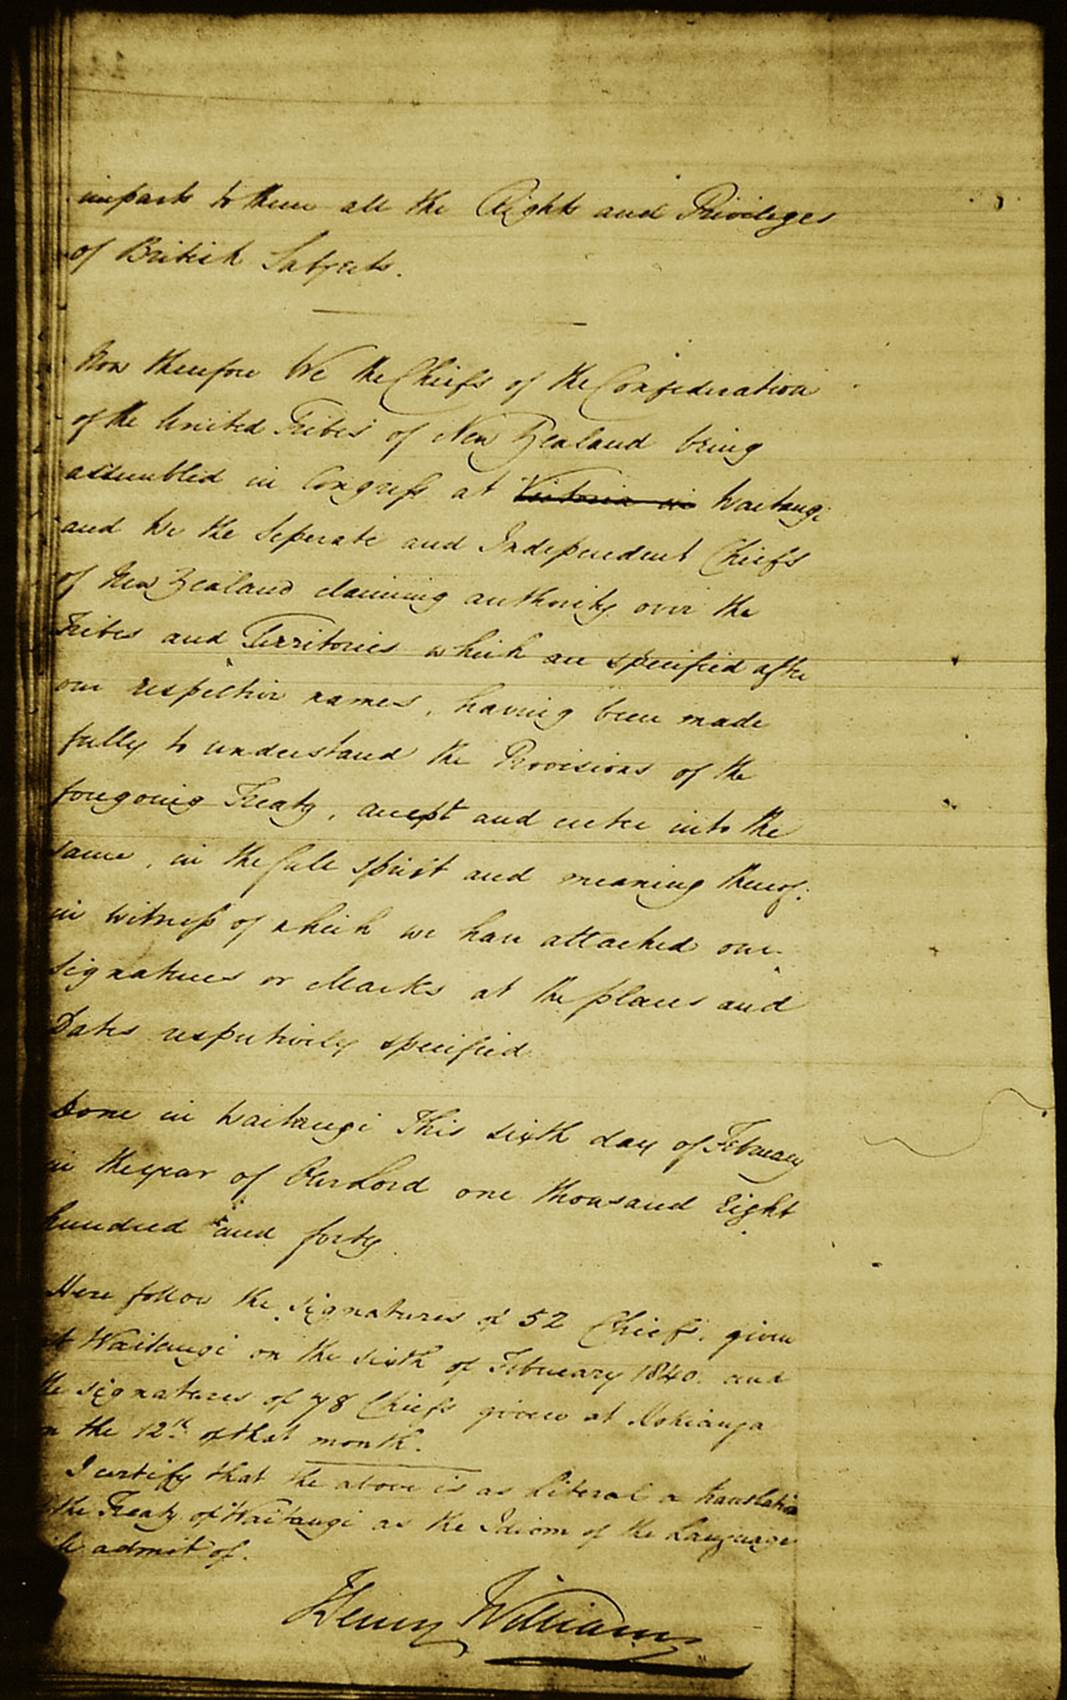 imparts to them all the Rights and Privileges
of British Subjects.
Now therefore We the Chiefs of the Confederation
of the United Tribes of New Zealand being
assembled in Congress at Victoria in Waitangi
and We the Seperate and Independent Chiefs
of New Zealand claiming authority over the
Tribes and Territories which are specified after
our respective names, having been made
fully to understand the Provisions of the
foregoing Treaty, accept and enter into the
same, in the full spirit and meaning thereof:
in witness of which we have attached our
signatures or Marks at the places and
Dates respectively specified.
Done in Waitangi This sixth day of February
in the year of Our Lord one thousand Eight
hundred and forty.
Here follow the signatures of 52 Chiefs. given
at Waitangi on the sixth of February 1840. and
the signatures of 78 Chiefs given at Hokianga
on the 12th of that month.
I certify that the above is as literal a translation
of the Treaty of Waitangi as the Idiom of the Language
will admit of.
Henry Williams